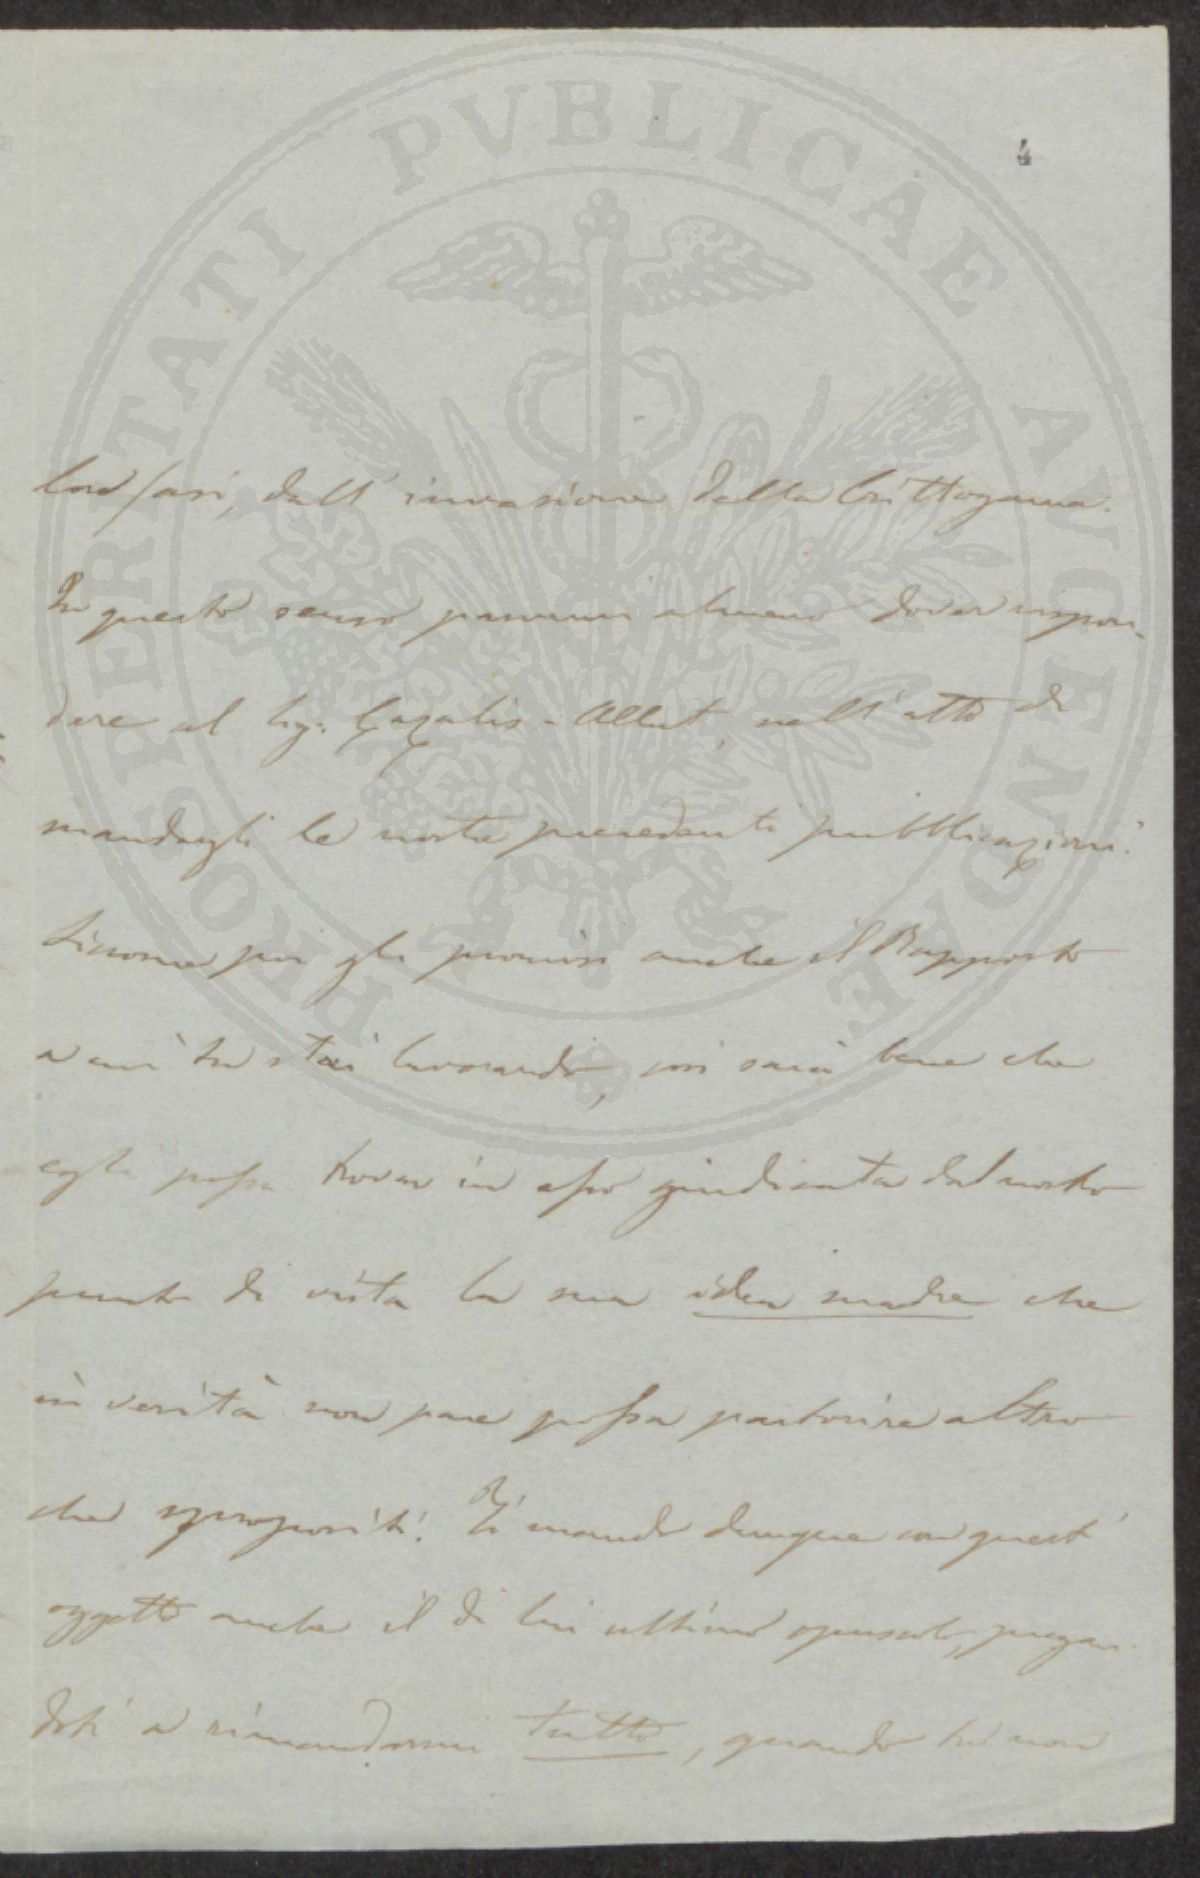 PROSPERITATI PVBLICAE AVGENDAE
4
dall' invasione della Crittogama.
In questo senso parmi almeno dover rispon-
dere al Sig. Cazalis-Allut, nell' atto di
mandargli le nostre precedenti pubblicazioni.
Siccome poi gli promisi anche il Rapporto
a cui tu stai lavorando, così sarà bene che
egli possa trovar in esso giudicata dal nostro
punto di vista la sua idea madre che
in verità non pare possa partorire altro
che spropositi. Ti mando dunque con quest'
oggetto anche il di lui ultimo opuscolo, pregan-
doti a rimandarmi tutto, quando tu non